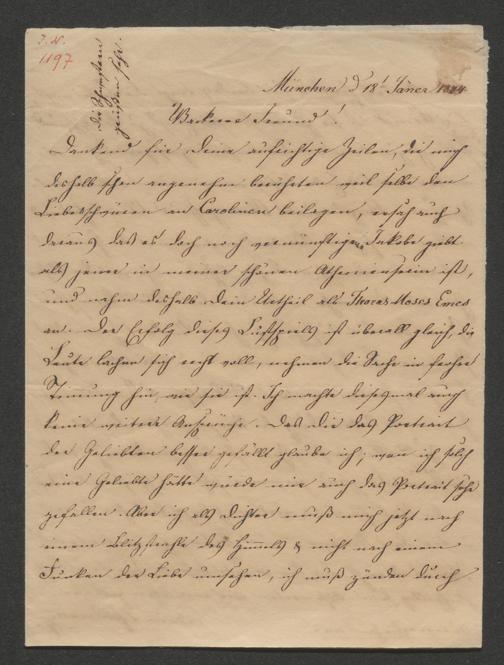 J. N.
1197
Die Schwestern
grüßen sehr.
München d 18t Jäner
Wackerer Freund!
Dankend für Deine aufrichtige Zeilen, die mich
deshalb schon angenehm berührten weil selbe den
Liebesschwüren an Carolinen beilagen, ersah auch
daraus daß es doch noch vernünftigere Jakobe giebt
als jener in meiner schönen Athenienserin ist,
und nehm deshalb Dein Urtheil als Thoras Moses Emes
an. Der Erfolg dieses Lustspiels ist überall gleich, die
Leute lachen sich recht voll, nehmen die Sache in froher
Stimmung hin, wie sie ist. Ich machte diesesmal auch
keine weitere Ansprüche. Das Dir das Portrait
der Geliebten besser gefällt glaube ich, wenn ich solch
eine Geliebte hätte würde mir auch das Portrait sehr
gefallen. Aber ich als Dichter muß mich jetzt nach
einem Blitzstrahle des Himmels & nicht nach einem
Funken der Liebe umsehen, ich muß zünden durch